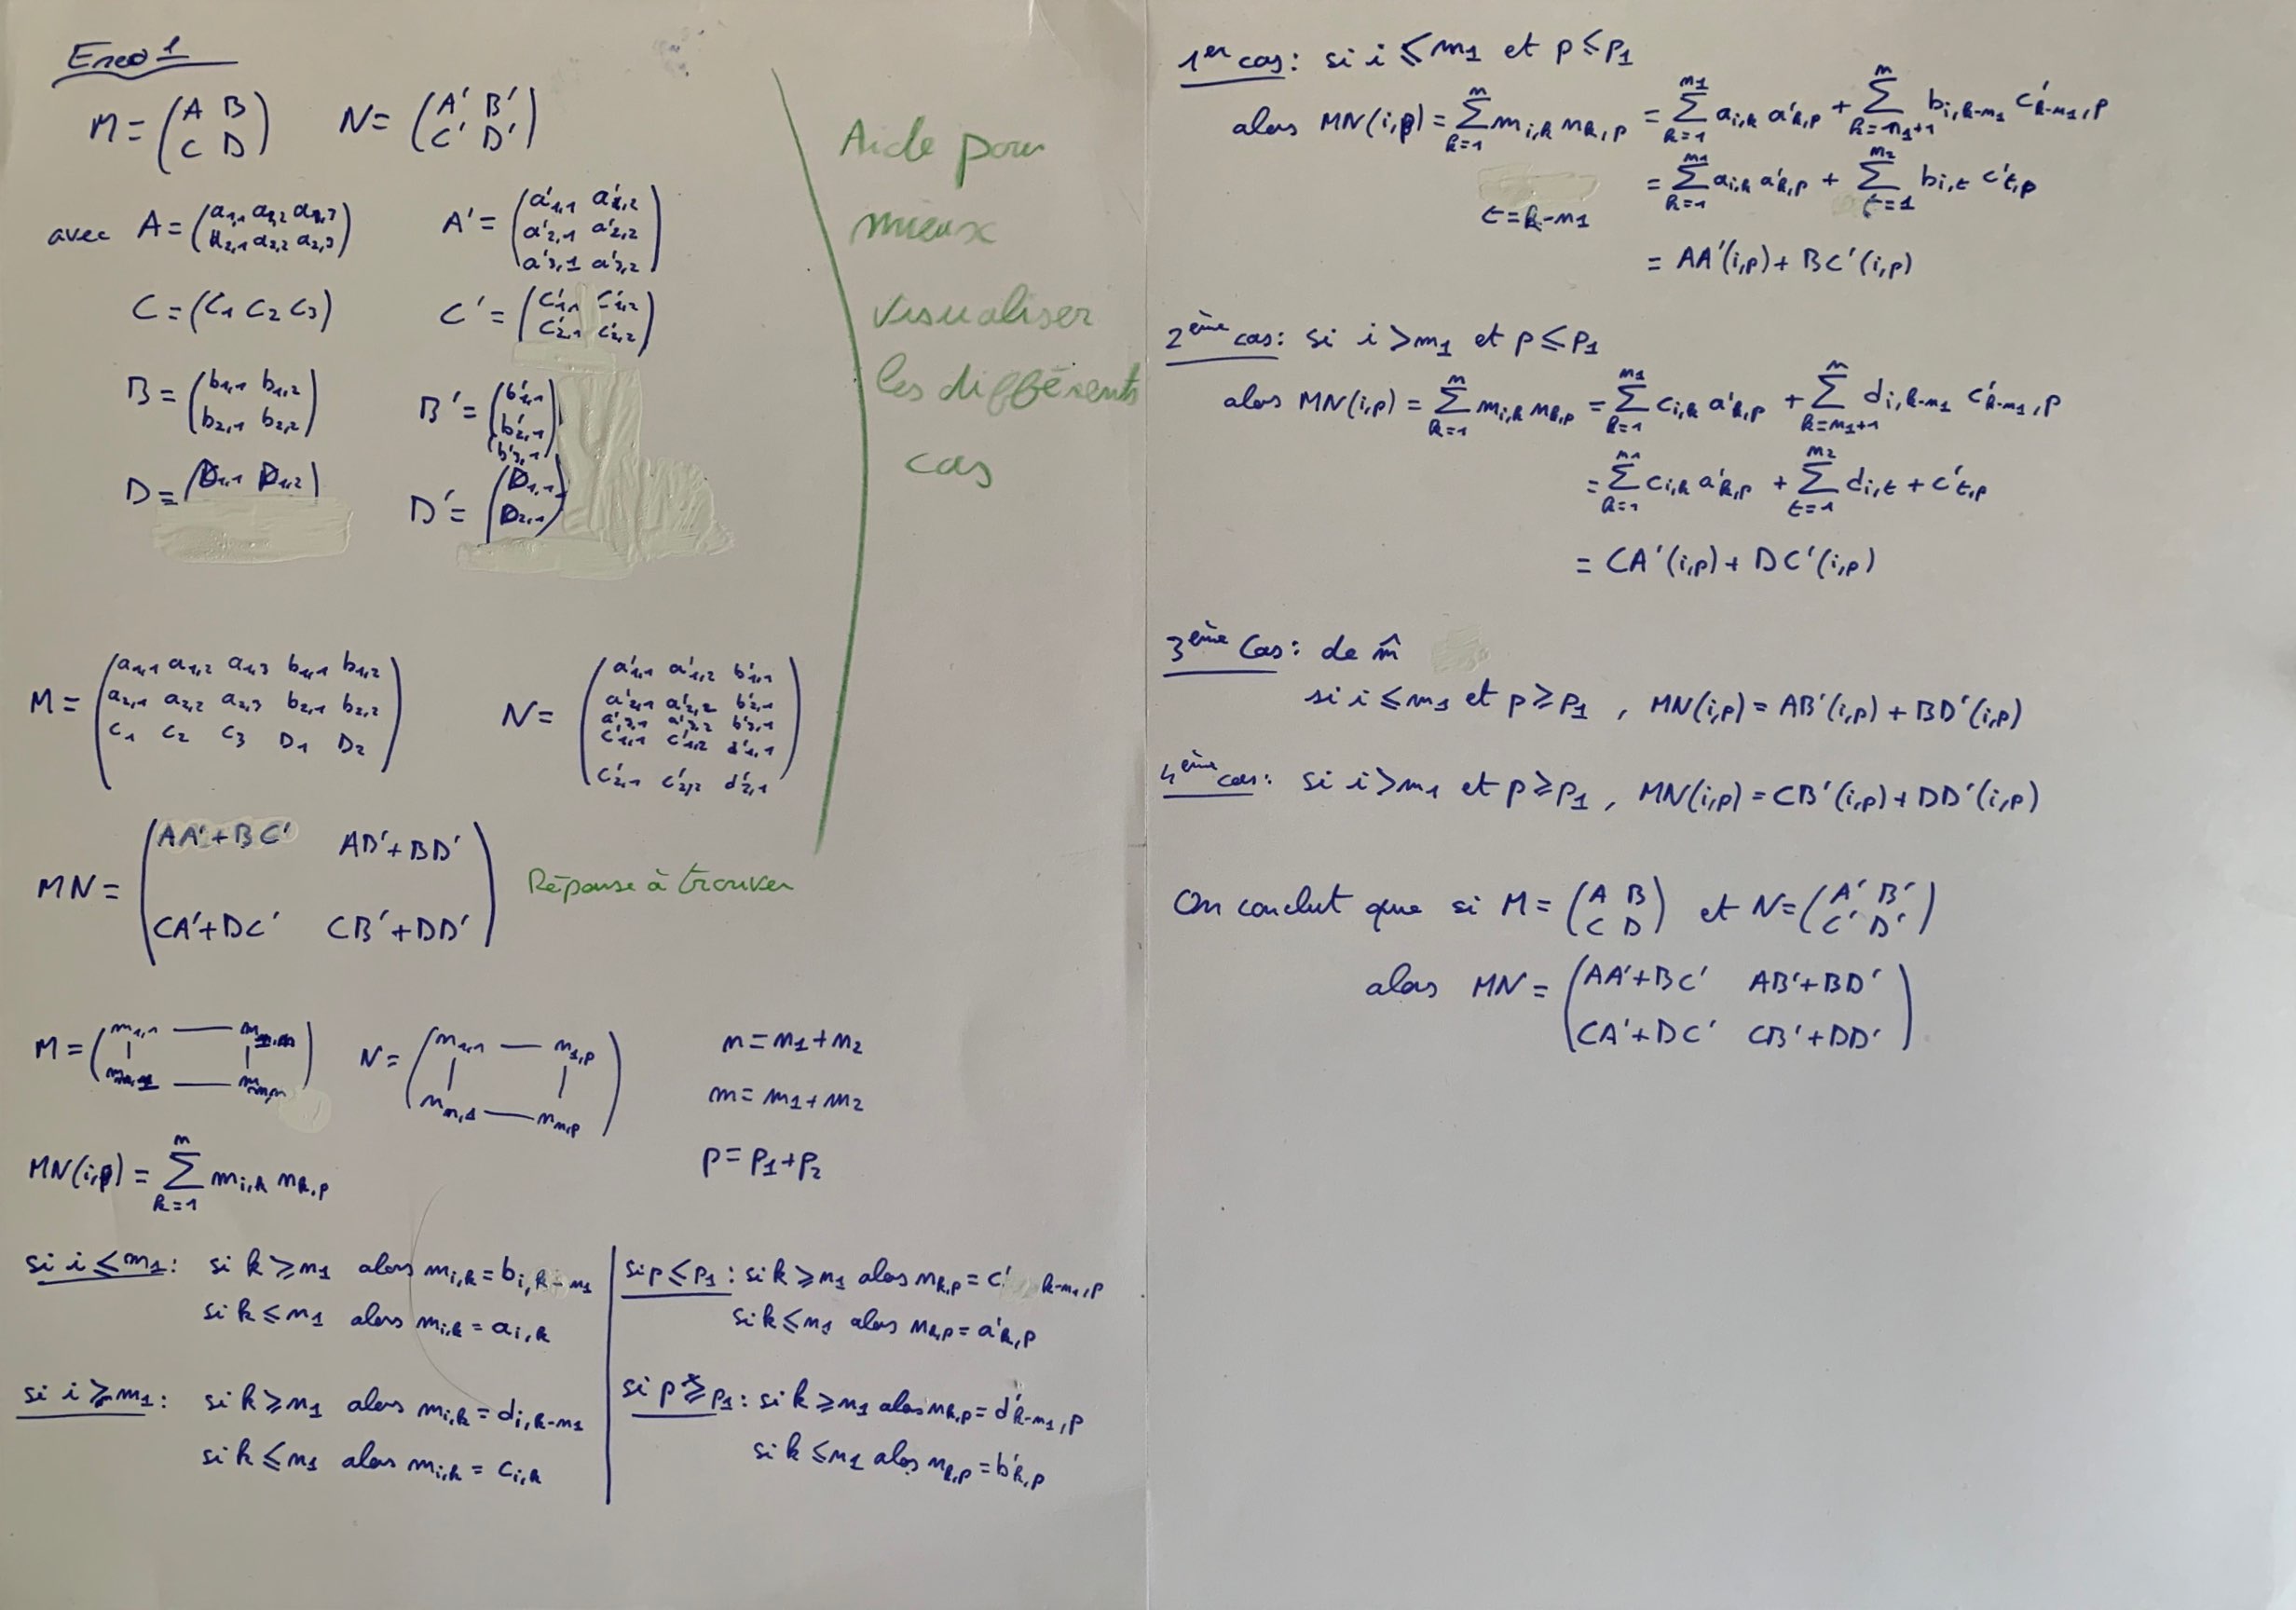 Exo 1
M = (A B
C D) N = (A' B'
C' D')
avec A = (a1,1 a1,2 a1,3
a2,1 a2,2 a2,3) A' = (a'1,1 a'1,2
a'2,1 a'2,2
a'3,1 a'3,2)
C = (C1 C2 C3) C' = (C'1,1 C'1,2
C'2,1 C'2,2)
B = (b1,1 b1,2
b2,1 b2,2) B' = (b'1,1
b'2,1
b'3,1)
D = (D1,1 D1,2) D' = (D1,1
D2,1)
Aide pour
mieux
visualiser
les différents
cas
M = (a1,1 a1,2 a1,3 b1,1 b1,2
a2,1 a2,2 a2,3 b2,1 b2,2
C1 C2 C3 D1 D2)
N = (a'1,1 a'1,2 b'1,1
a'2,1 a'2,2 b'2,1
a'3,1 a'3,2 b'3,1
C'1,1 C'1,2 d'1,1
C'2,1 C'2,2 d'2,1)
MN = (AA'+BC' AB'+BD'
CA'+DC' CB'+DD') Réponse à trouver
M = (m1,1 — m1,n
mm,1 — mm,n) N = (n1,1 — n1,p
nn,1 — nn,p)
n = n1 + n2
m = m1 + m2
p = p1 + p2
MN(i,p) = Σ k=1 n mi,k nk,p
si i ≤ m1 : si k ≥ n1 alors mi,k = bi,k-n1
si k ≤ n1 alors mi,k = ai,k
si i ≥ m1 : si k ≥ n1 alors mi,k = di,k-n1
si k ≤ n1 alors mi,k = ci,k
si p ≤ p1 : si k ≥ n1 alors nk,p = c' k-n1,p
si k ≤ n1 alors nk,p = a'k,p
si p ≥ p1 : si k ≥ n1 alors nk,p = d'k-n1,p
si k ≤ n1 alors nk,p = b'k,p
1er cas : si i ≤ m1 et p ≤ p1
alors MN(i,p) = Σ k=1 n mi,k nk,p = Σ k=1 n1 ai,k a'k,p + Σ k=n1+1 n bi,k-n1 c'k-n1,p
t = k-n1 = Σ k=1 n1 ai,k a'k,p + Σ t=1 n2 bi,t c't,p
= AA'(i,p) + BC'(i,p)
2ème cas : si i > m1 et p ≤ p1
alors MN(i,p) = Σ k=1 n mi,k nk,p = Σ k=1 n1 ci,k a'k,p + Σ k=n1+1 n di,k-n1 c'k-n1,p
= Σ k=1 n1 ci,k a'k,p + Σ t=1 n2 di,t + c't,p
= CA'(i,p) + DC'(i,p)
3ème Cas : de m̂
si i ≤ m1 et p ≥ p1 , MN(i,p) = AB'(i,p) + BD'(i,p)
4ème cas : si i > m1 et p ≥ p1 , MN(i,p) = CB'(i,p) + DD'(i,p)
On conclut que si M = (A B
C D) et N = (A' B'
C' D')
alors MN = (AA'+BC' AB'+BD'
CA'+DC' CB'+DD').